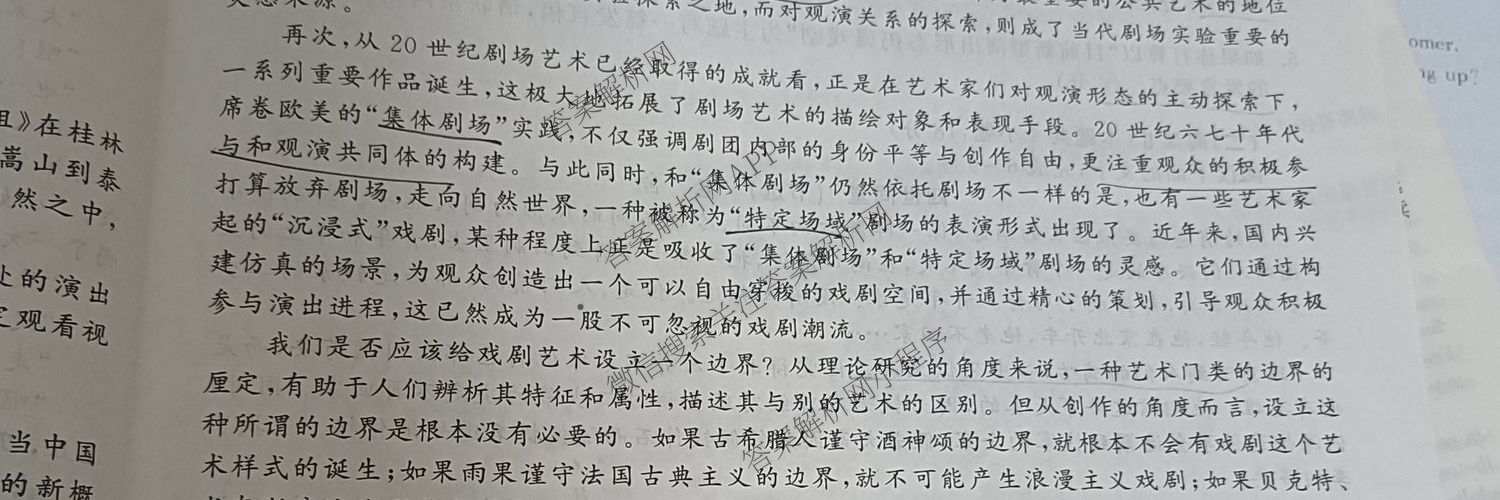 之地,而对观演关系的探索,则成了当代剧场实验重要的
再次,从 20 世纪剧场艺术已经取得的成就看,正是在艺术家们对观演形态的主动探索下,
一系列重要作品诞生,这极大地拓展了剧场艺术的描绘对象和表现手段。20 世纪六七十年代
席卷欧美的“集体剧场”实践,不仅强调剧团内部的身份平等与创作自由,更注重观众的积极参
与和观演共同体的构建。与此同时,和“集体剧场”仍然依托剧场不一样的是,也有一些艺术家
打算放弃剧场,走向自然世界,一种被称为“特定场域”剧场的表演形式出现了。近年来,国内兴
起的“沉浸式”戏剧,某种程度上正是吸收了“集体剧场”和“特定场域”剧场的灵感。它们通过构
建仿真的场景,为观众创造出一个可以自由穿梭的戏剧空间,并通过精心的策划,引导观众积极
参与演出进程,这已然成为一股不可忽视的戏剧潮流。
我们是否应该给戏剧艺术设立一个边界?从理论研究的角度来说,一种艺术门类的边界的
厘定,有助于人们辨析其特征和属性,描述其与别的艺术的区别。但从创作的角度而言,设立这
种所谓的边界是根本没有必要的。如果古希腊人谨守酒神颂的边界,就根本不会有戏剧这个艺
术样式的诞生;如果雨果谨守法国古典主义的边界,就不可能产生浪漫主义戏剧;如果贝克特、
》在桂林
嵩山到泰
然之中,
的演出
观看视
当中国
的新概
omer.
ng up?
答案解析网
答案解析网APP
微信搜索关注答案解析网
答案解析网小程序